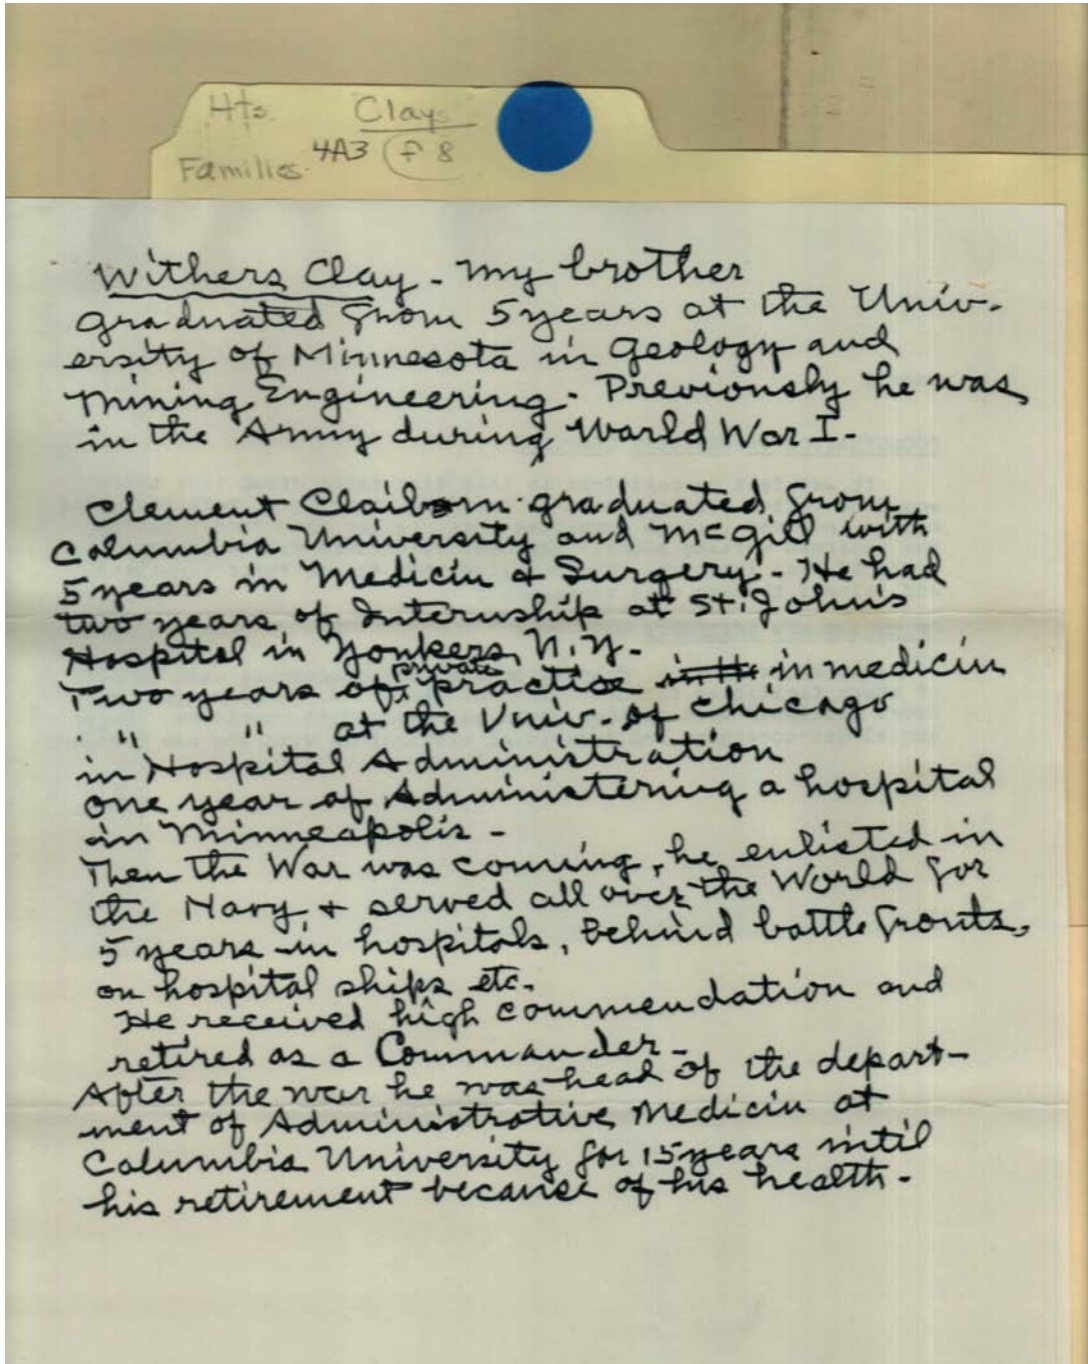 Hts. Clay
Families. 4A3 f 8
Withers Clay - my brother
graduated from 5 years at the Univ-
ersity of Minnesota in Geology and
Mining Engineering - Previously he was
in the Army during World War I -
Clement Claiborn graduated from
Columbia University and McGill with
5 years in Medicin & Surgery - He had
two years of Internship at St. John's
Hospital in Yonkers, N.Y. -
private
Two years of practise in th in medicin
" " at the Univ. of Chicago
in Hospital Administration
one year of Administering a hospital
in Minneapolis -
Then the War was coming, he enlisted in
the Navy, + served all over the World for
5 years in hospitals, behind battle fronts,
on hospital ships etc.
He received high commendation and
retired as a Commander -
After the war he was head of the depart-
ment of Administrative Medicin at
Columbia University for 15 years intil
his retirement because of his health -